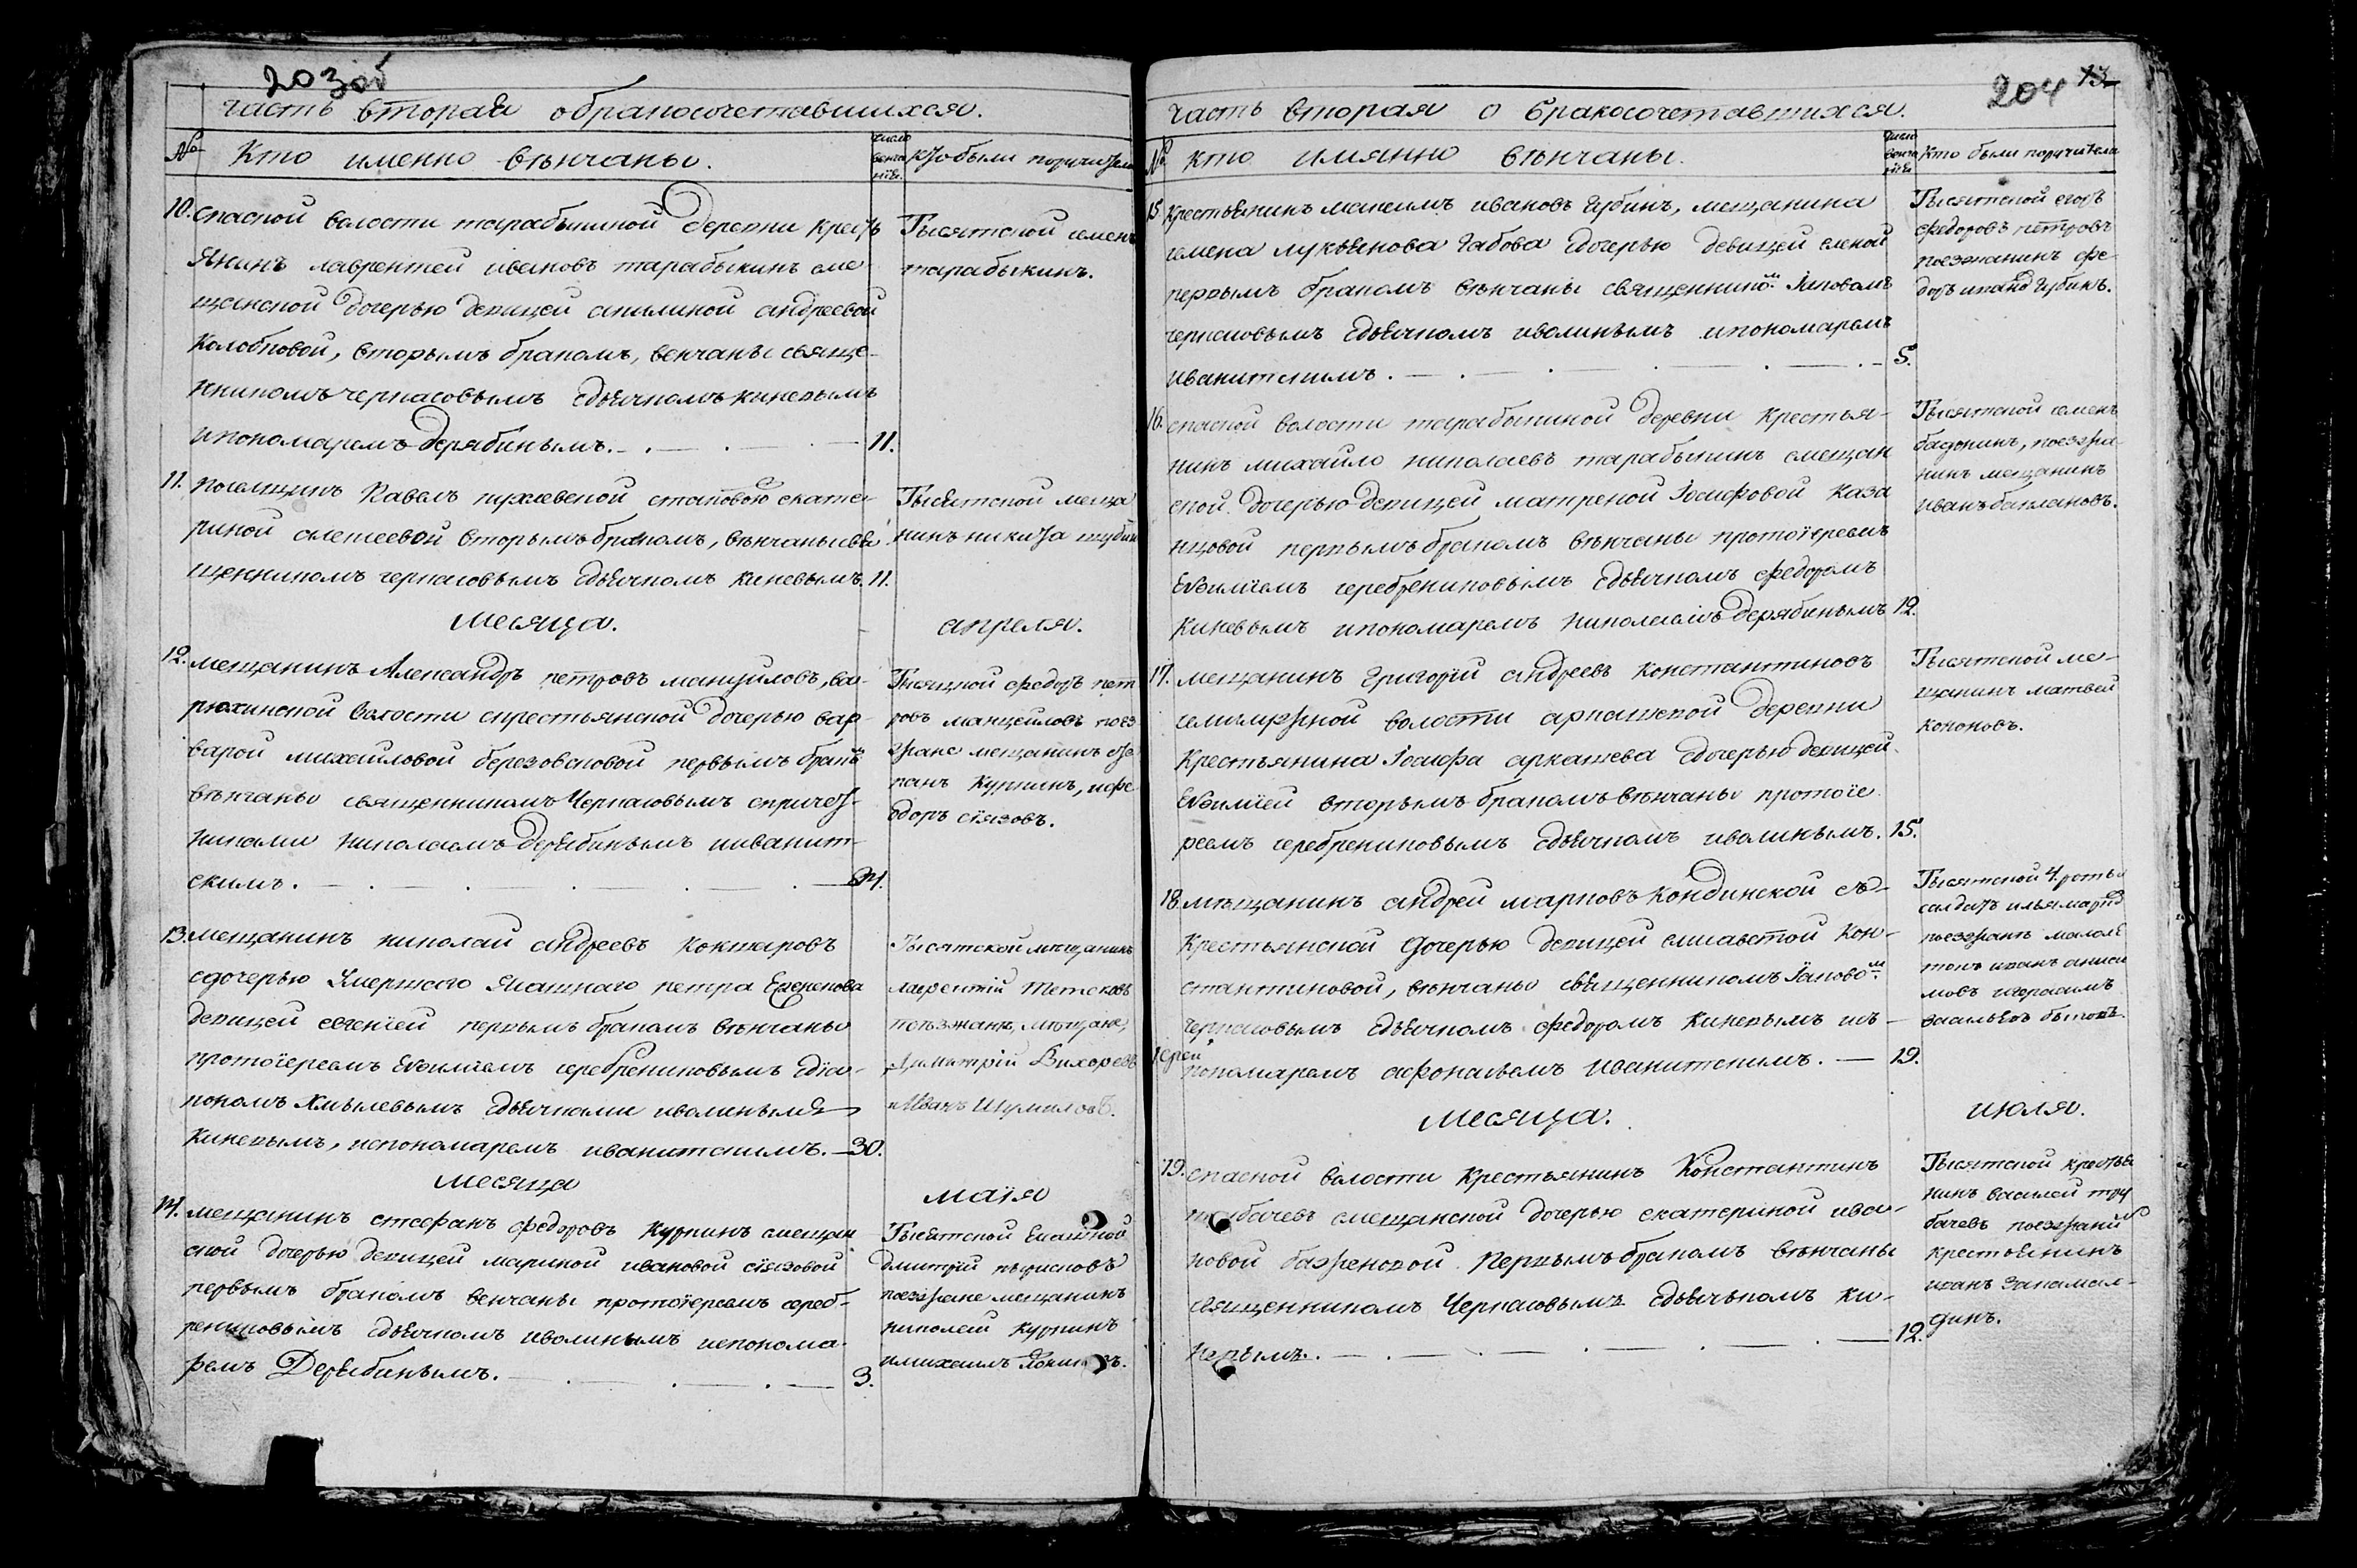 203об
часть вторая обракосочетавшихся.
№ Кто именно венчаны. число венчания Кто были поручители
10. спаской волости тарабыкиной деревни Кресть
янинъ лаврентей ивановъ тарабыкинъ сме
щанской дочерью девицей акилиной андреевой
Колобковой, вторымъ бракомъ, венчаны свяще-
нникомъ черкасовымъ здьячкомъ киневымъ
ипономаремъ Дерябинымъ. 11.
Тысятской семенъ
тарабыкинъ.
11. поселщикъ Павелъ пухлевской свдовою екате-
риной алексеевой вторымъ бракомъ, венчаны свя
щенникомъ черкасовымъ здьячкомъ киневымъ. 11.
Тысятской меща
нинъ никита шубин
Месяца. апреля.
12. мещанинъ Александръ петровъ манцуловъ, ва-
рюхинской волости скрестьянской дочерью вар-
варой михайловой березовсковой первымъ бракъ
венчаны священникомъ Черкасовымъ спричет-
никами николаемъ Дерябинымъ иивanit-
скимъ. 24.
Тысяцкой федоръ пет
ровъ манцуловъ поез
жане мещанинъ сте
панъ Куркинъ, ифе
одоръ сїязовъ.
13. мещанинъ николай андреевъ кокшаровъ
сдочерью Умершаго Ямщнаго петра
девицей евгенїей первымъ бракомъ венчаны
протоїереемъ Евѳимїемъ серебрениковымъ здїа-
кономъ Хмылевымъ здьячками иволинымъ
Киневымъ, испономаремъ иванитскимъ. 30.
Тысятской мещанинъ
лаврентїй Тетековъ
поезжане, мещане,
Димитрїй Вихоревъ
и Иванъ Шумиловъ.
месяца маїя
14. мещанинъ стефанъ федоровъ Куркинъ смещан
ской дочерью девицей мариной ивановой сїязовой
первымъ бракомъ венчаны протоїереемъ сереб-
рениковымъ здьячкомъ иволинымъ испонома-
ремъ Дерябинымъ. 3.
Тысятской
дмитрїй
поезжане мещанинъ
николай Куркинъ
имихаилъ
204 13
Часть вторая о бракосочетавшихся.
№ кто имянно венчаны. число венчания Кто были поручители
15. Крестьянинъ максимъ ивановъ Губинъ, мещанина
семена лукьянова Габова здочерью девицей еленой
первымъ бракомъ венчаны священникомъ Їаковомъ
черкасовымъ здьячкомъ иволинымъ ипономаремъ
иванитскимъ. 5.
Тысятской егоръ
федоровъ петровъ
поезжанинъ фе-
доръ ивановъ Губинъ.
16. спаской волости тарабыкиной деревни крестья-
нинъ михайло николаевъ тарабыкинъ смещан
ской дочерью девицей матреной Їосифовой каза
нцовой первымъ бракомъ венчаны протоїереемъ
Евѳимїемъ серебрениковымъ здьячкомъ федоромъ
Киневымъ ипономаремъ николаемъ Дерябинымъ 12.
Тысятской семенъ
бадонинъ, поезжа
нинъ мещанинъ
иванъ баклановъ.
17. мещанинъ Григорїй андреевъ константиновъ
семилужной волости аркашевой деревни
Крестьянина Їосифа аркашева здочерью девицей
Евѳимїей вторымъ бракомъ венчаны протоїе-
реемъ серебрениковымъ здьячкомъ иволинымъ. 15.
Тысятской ме-
щанинъ матвей
кононовъ.
18. мещанинъ андрей марковъ Кондинской съ-
Крестьянской дочерью девицей елисаветой кон-
стантиновой, венчаны священникомъ Їаковомъ
черкасовымъ здьячкомъ федоромъ Киневымъ иъ-
пономаремъ афонасьемъ иванитскимъ. 19.
Їерей
Тысятской 4. роты
салдатъ илья
поезжанъ
иванъ аниси
мовъ игерасимъ
васильевъ
месяца. июля.
19. спаской волости крестьянинъ Константинъ
трубачевъ смещанской дочерью екатериной ива-
новой баженовой первымъ бракомъ венчаны
священникомъ Черкасовымъ здьячькомъ Ки-
невымъ. 12.
Тысятской крестья
нинъ василей тру
бачевъ поезжанинъ
крестьянинъ
иванъ Закамал-
динъ.